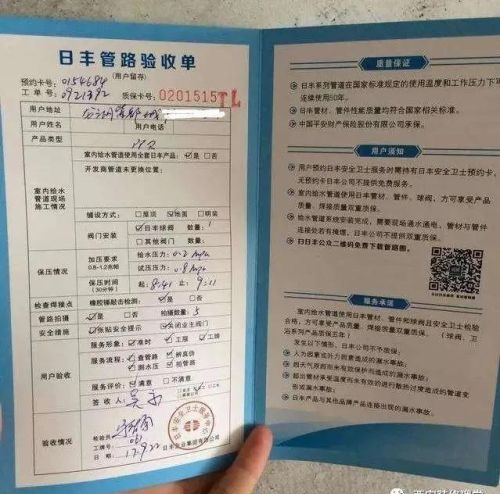 日丰管路验收单
(用户留存)
预约卡号: 0154684
工单号: 0921392
质保卡号: 0201515TL
用户地址
用户姓名
用户电话
产品类型
室内给水管道现场施工情况
室内给水管道使用全套日丰产品: ☑是 □否
开发商管道未更换位置:
铺设方式: □屋顶 ☑地面 □明装
阀门安装
☑日丰球阀 数量: 1
□其他阀门 数量:
保压情况
加压要求
0.8-1.2兆帕
给水压力: 0.2 Mpa
试压压力: 0.8 Mpa
保压时间
(30分钟)
起: 8:41 止: 9:11
检查焊接点
橡胶锤敲击检测: ☑是 □否
管路拍摄
☑是 □否 拍摄数量: 5
安全措施
☑张贴安全提示 ☑关闭业主阀门
用户验收
服务形象: ☑准时 ☑工服 ☑工牌
服务流程: ☑查管路 ☑辨真伪
☑测水压 ☑拍管路
服务评价: ☑满意 □不满意
签收人:
验收情况
检验员:
工牌号:
日期: 17.9.22
日丰企业集团有限公司
质量保证
日丰系列管道在国家标准规定的使用温度和工作压力下可
连续使用50年。
日丰管材、管件性能质量均符合国家相关标准。
中国平安财产保险股份有限公司承保。
用户须知
用户预约日丰安全卫士服务时需持有日丰安全卫士预约卡,
无预约卡日丰公司不提供免费服务。
室内给水管道使用日丰管材、管件、球阀,方可享受产品
质量、焊接质量双重质保。
给水管道系统安装完成,需要现场通水通电、管材与管件
连接处若有掩埋、日丰公司不提供双重质保。
扫日丰公众二维码免费下载管路图。
服务承诺
室内给水管道使用日丰管材、管件和球阀且安全卫士检验
合格,方可享受产品质量、焊接质量双重质保。(球阀、卫
浴系列产品质保五年)
发生以下情形,日丰公司不予质保:
人为因素或外力因素造成的漏水事故。
因天气原因而未有效保护所造成的漏水事故。
超出管材承受温度而未有效的进行散热过渡造成的管道变
形或漏水事故。
日丰产品与其他品牌产品连接出现的漏水事故。